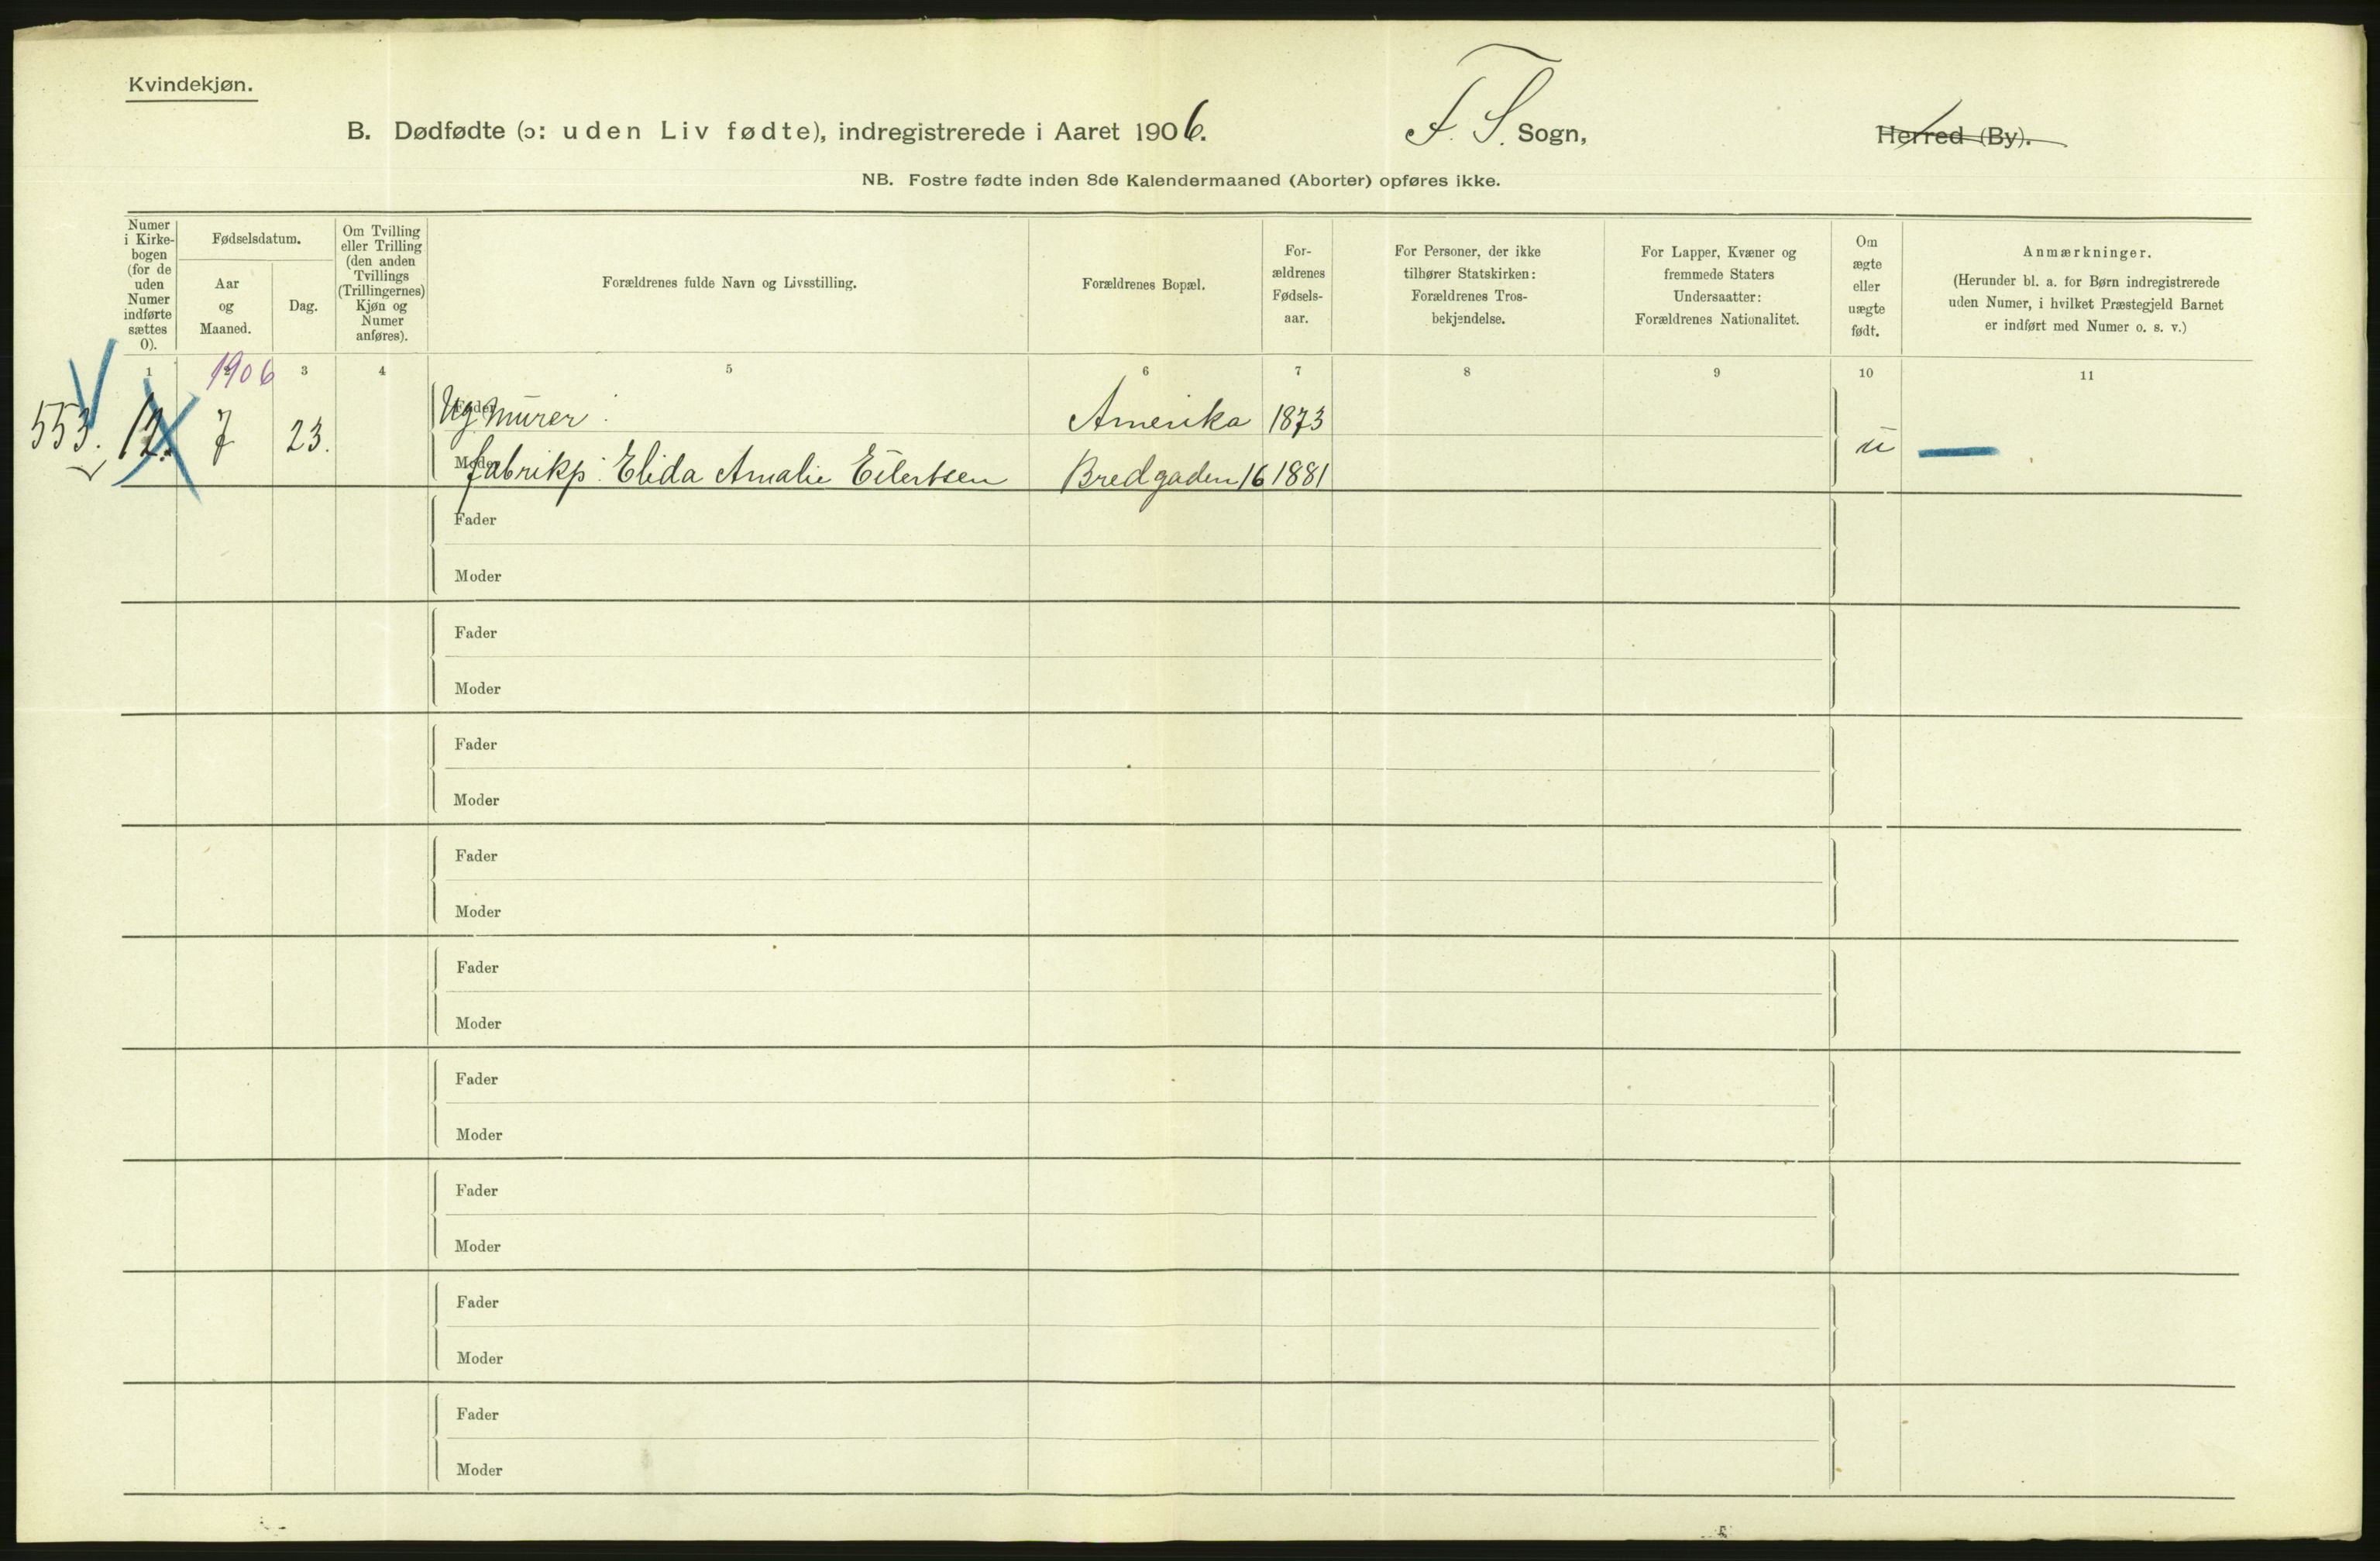 Kvindekjøn.
B. Dødfødte (ɔ: uden Liv fødte), indregistrerede i Aaret 1906. F. S. Sogn, Herred (By).
NB. Fostre fødte inden 8de Kalendermaaned (Aborter) opføres ikke.
Numer
i Kirke-
bogen
(for de
uden
Numer
indførte
sættes
0).
Fødselsdatum.
Aar
og
Maaned.
Dag.
Om Tvilling
eller Trilling
(den anden
Tvillings
(Trillingernes)
Kjøn og
Numer
anføres).
Forældrenes fulde Navn og Livsstilling.
Forældrenes Bopæl.
For-
ældrenes
Fødsels-
aar.
For Personer, der ikke
tilhører Statskirken:
Forældrenes Tros-
bekjendelse.
For Lapper, Kvæner og
fremmede Staters
Undersaatter:
Forældrenes Nationalitet.
Om
ægte
eller
uægte
født.
Anmærkninger.
(Herunder bl. a. for Børn indregistrerede
uden Numer, i hvilket Præstegjeld Barnet
er indført med Numer o. s. v.)
1 2 3 4 5 6 7 8 9 10 11
1906
553. 12. 7 23.
Fader Ug Murer Amerika 1873
Moder fabrikp: Elida Amalie Eilertsen Bredgaden 16 1881
u
Fader
Moder
Fader
Moder
Fader
Moder
Fader
Moder
Fader
Moder
Fader
Moder
Fader
Moder
Fader
Moder
Fader
Moder